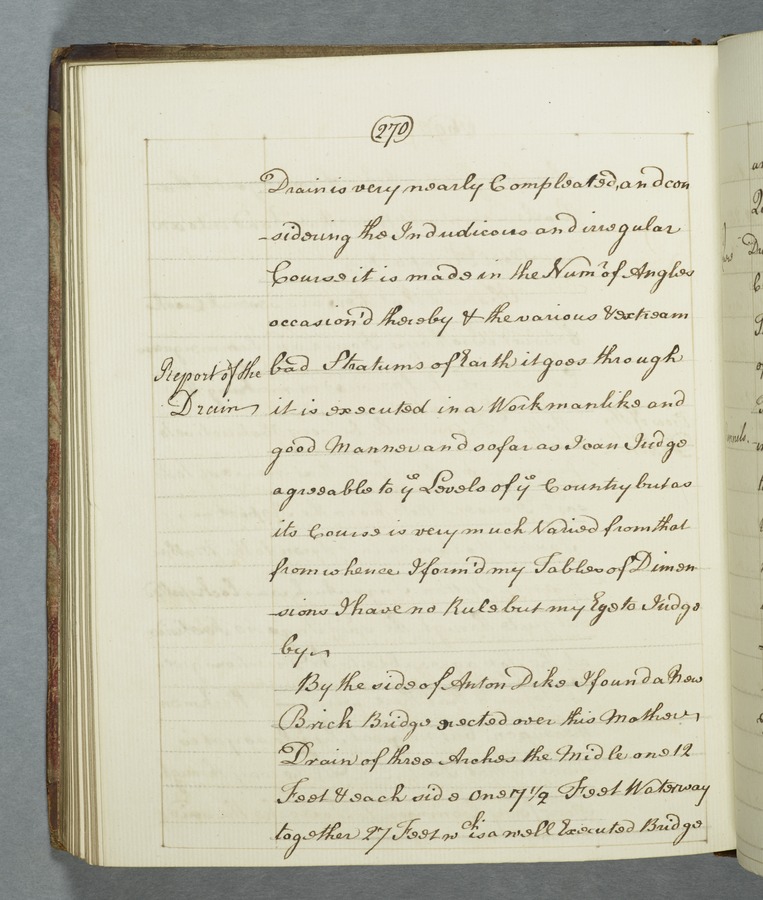 270
Drain is very nearly Compleated, and con
-sidering the Indudicous and irregular
Course it is made in the Numr. of Angles
occasion'd thereby & the various & extream
Report of the
bad Stratums of Earth it goes through
Drain
it is executed in a Workmanlike and
good Manner and so far as I can Judge
agreeable to ye Levels of ye Country but as
its Course is very much Varied from that
from whence I form'd my Tables of Dimen
-sions I have no Rule but my Eye to Judge
by
By the side of Anton Dike I found a New
Brick Bridge erected over this Mother
Drain of three Arches the Midle one 12
Feet & each side one 7 1/2 Feet Waterway
together 27 Feet wch is a well Executed Bridge